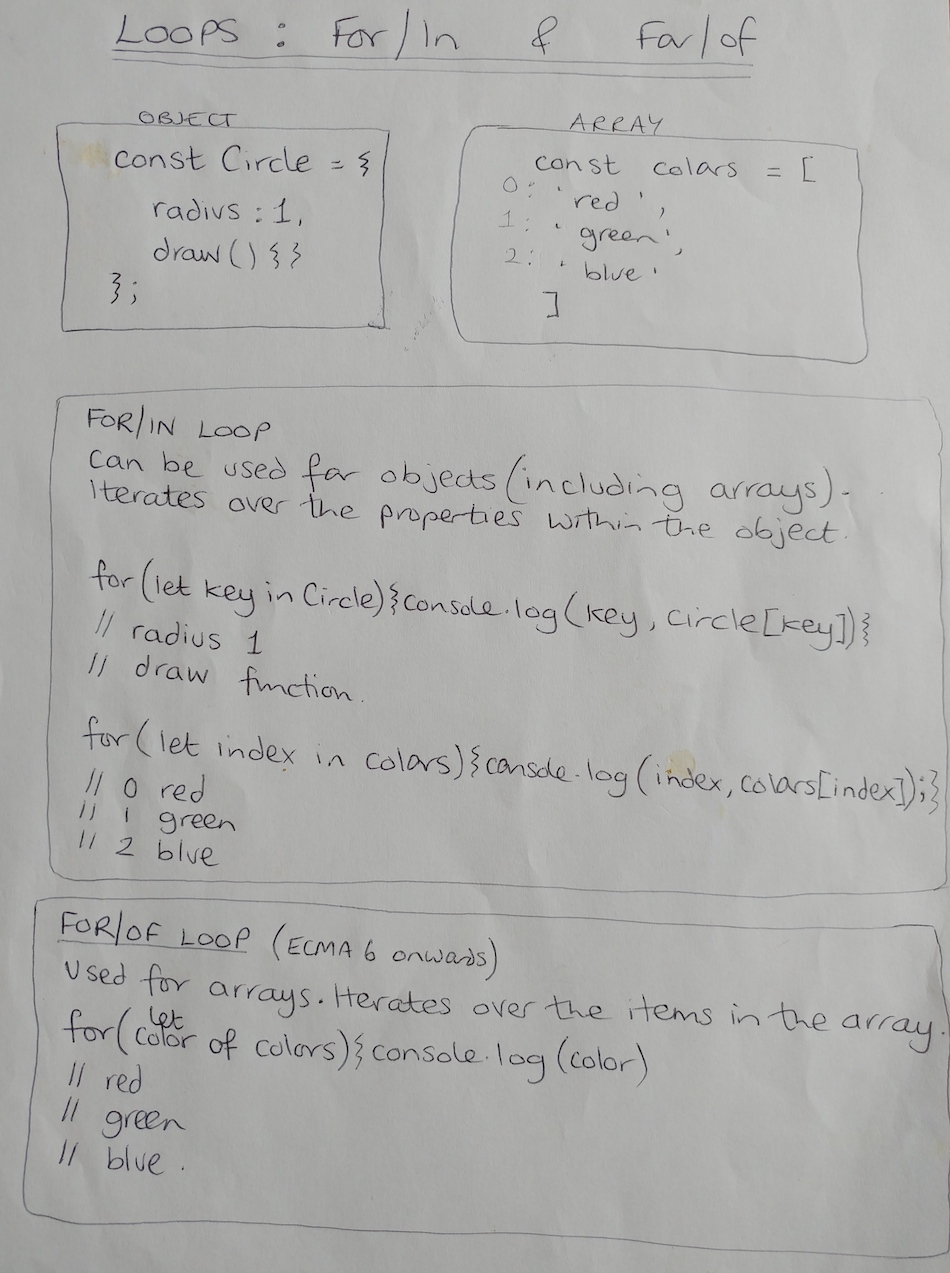 LOOPS : For/In & For/of
OBJECT
const Circle = {
radius : 1,
draw() {}
};
ARRAY
const colors = [
0: 'red',
1: 'green',
2: 'blue'
]
FOR/IN LOOP
Can be used for objects (including arrays).
Iterates over the properties within the object.
for(let key in Circle){console.log(key, circle[key])}
// radius 1
// draw function.
for(let index in colors){console.log(index, colors[index]);}
// 0 red
// 1 green
// 2 blue
FOR/OF LOOP (ECMA 6 onwards)
Used for arrays. Iterates over the items in the array.
for(let color of colors){console.log(color)
// red
// green
// blue.